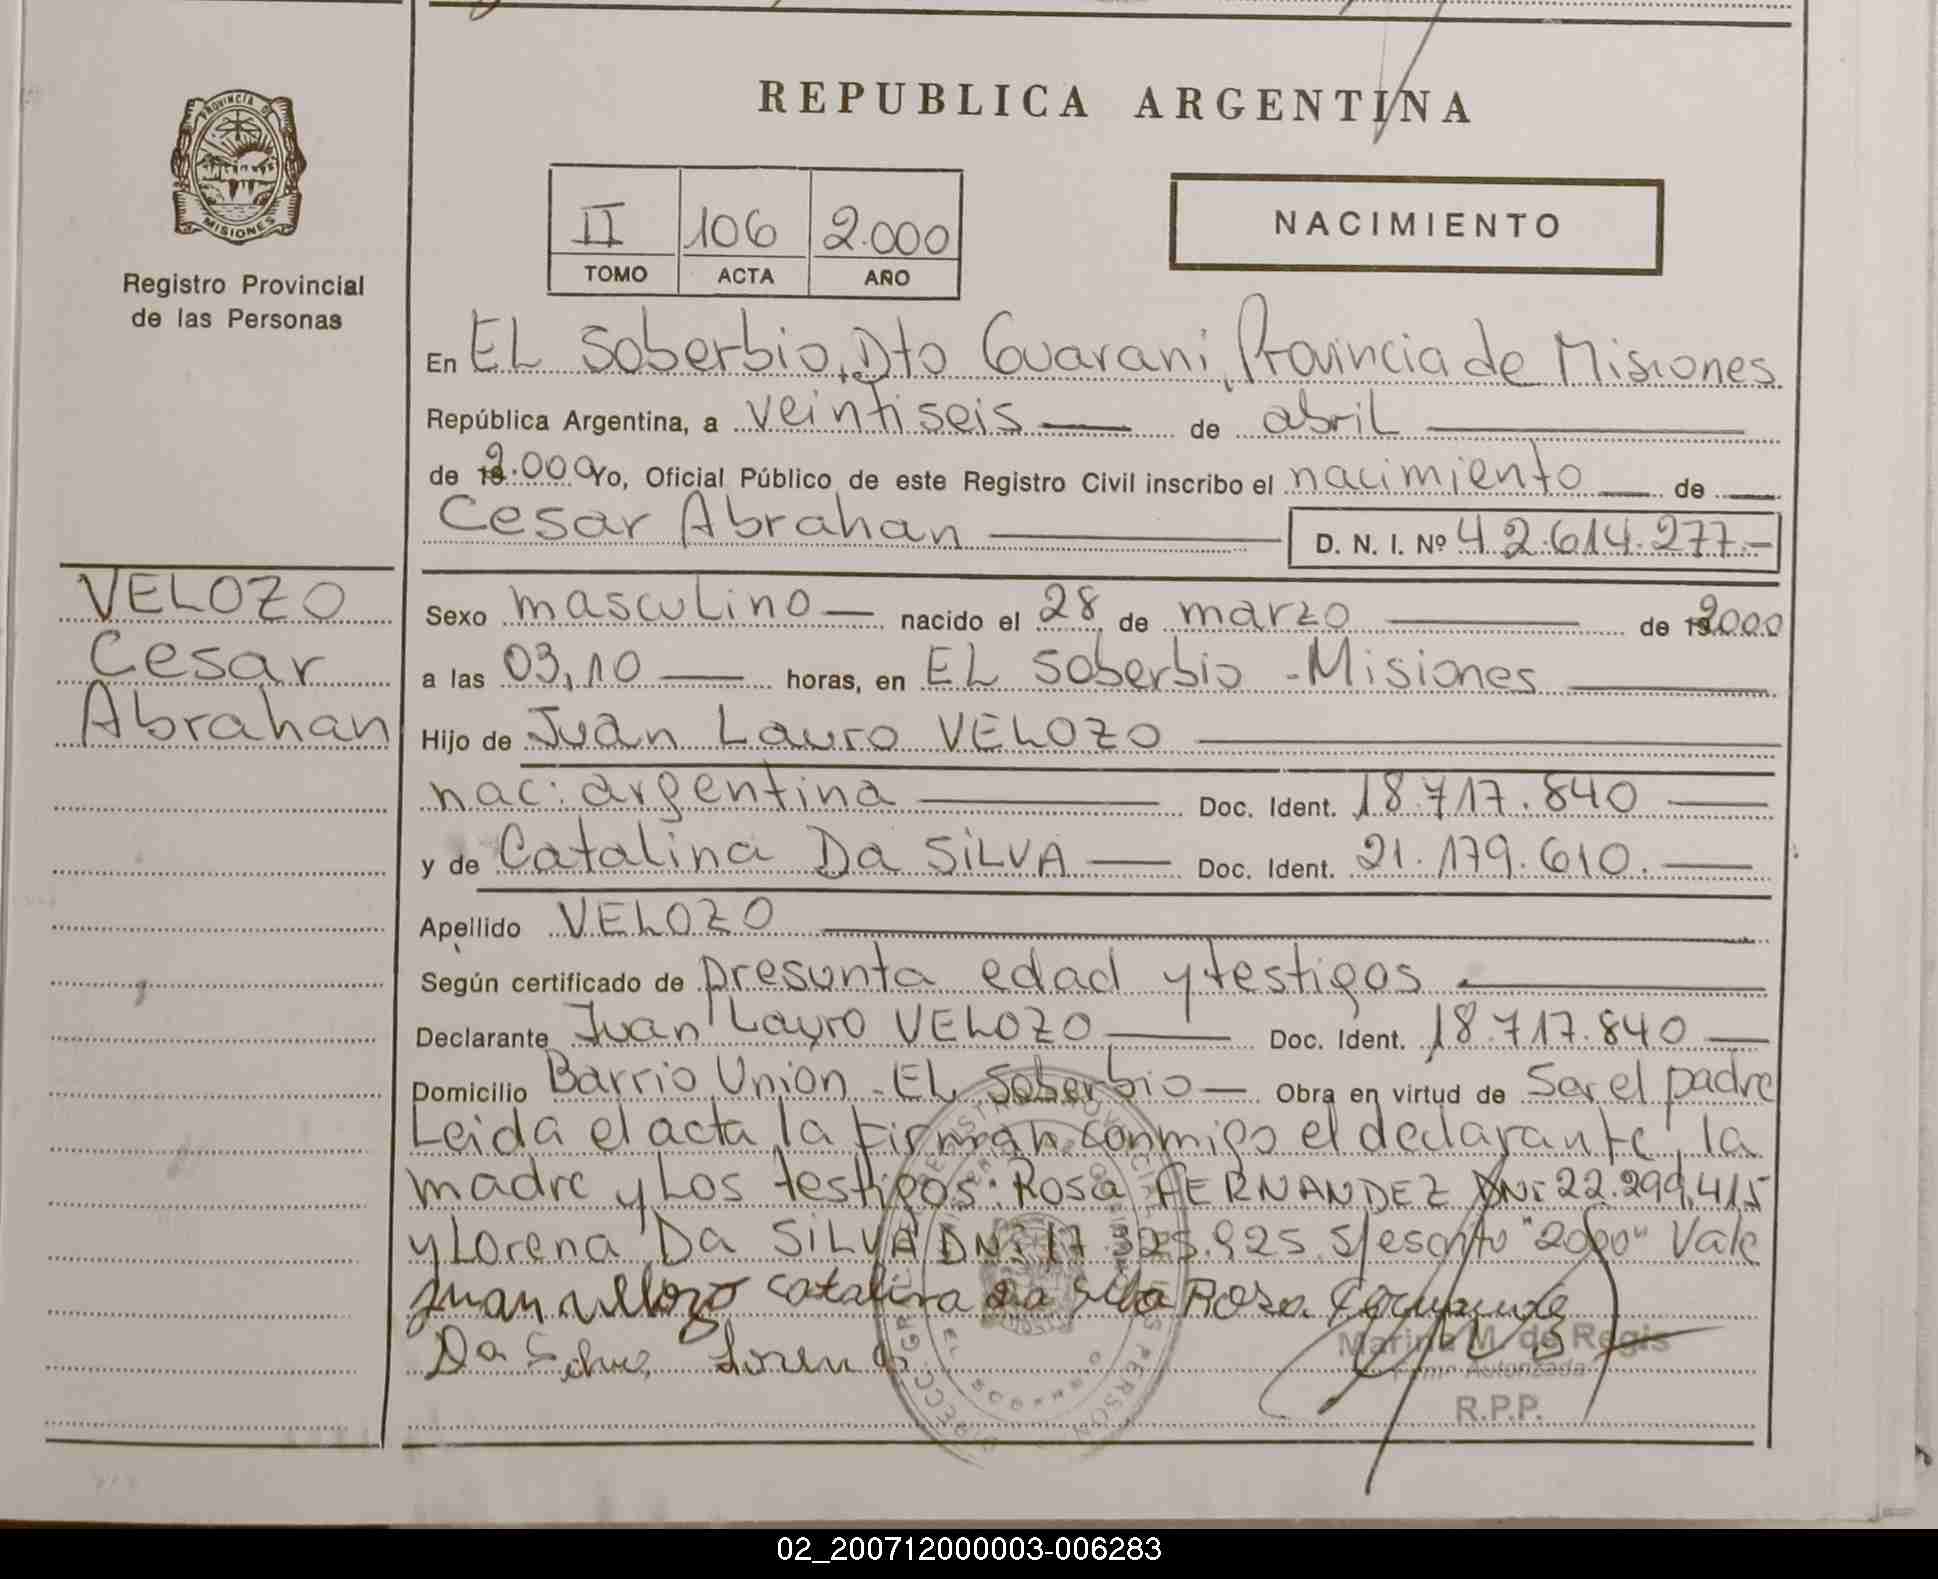 REPUBLICA ARGENTINA
PROVINCIA DE
MISIONES
Registro Provincial
de las Personas
II 106 2.000
TOMO ACTA AÑO
NACIMIENTO
En EL Soberbio, Dto Guarani, Provincia de Misiones
República Argentina, a veintiseis de abril
de 2.000 Yo, Oficial Público de este Registro Civil inscribo el nacimiento de
Cesar Abrahan D. N. I. Nº 42.614.277.-
VELOZO
Cesar
Abrahan
Sexo masculino nacido el 28 de marzo de 2000
a las 03,10 horas, en EL Soberbio - Misiones
Hijo de Juan Lauro VELOZO
nac: argentina Doc. Ident. 18.717.840
y de Catalina Da SiLVA Doc. Ident. 21.179.610.
Apellido VELOZO
Según certificado de presunta edad y testigos
Declarante Juan Lauro VELOZO Doc. Ident. 18.717.840
Domicilio Barrio Union - EL Soberbio Obra en virtud de Ser el padre
Leida el acta, la firman conmigo el declarante, la
madre y Los testigos: Rosa FERNANDEZ DNI 22.299.415
y Lorena Da SiLVA DNI 17.325.925 S/escrito "2000" Vale
Juan Velozo Catalina Da Silva Rosa Fernande
Da Silva Lorena
Marina M. de Regis
Firma Autorizada
R.P.P.
02_200712000003-006283